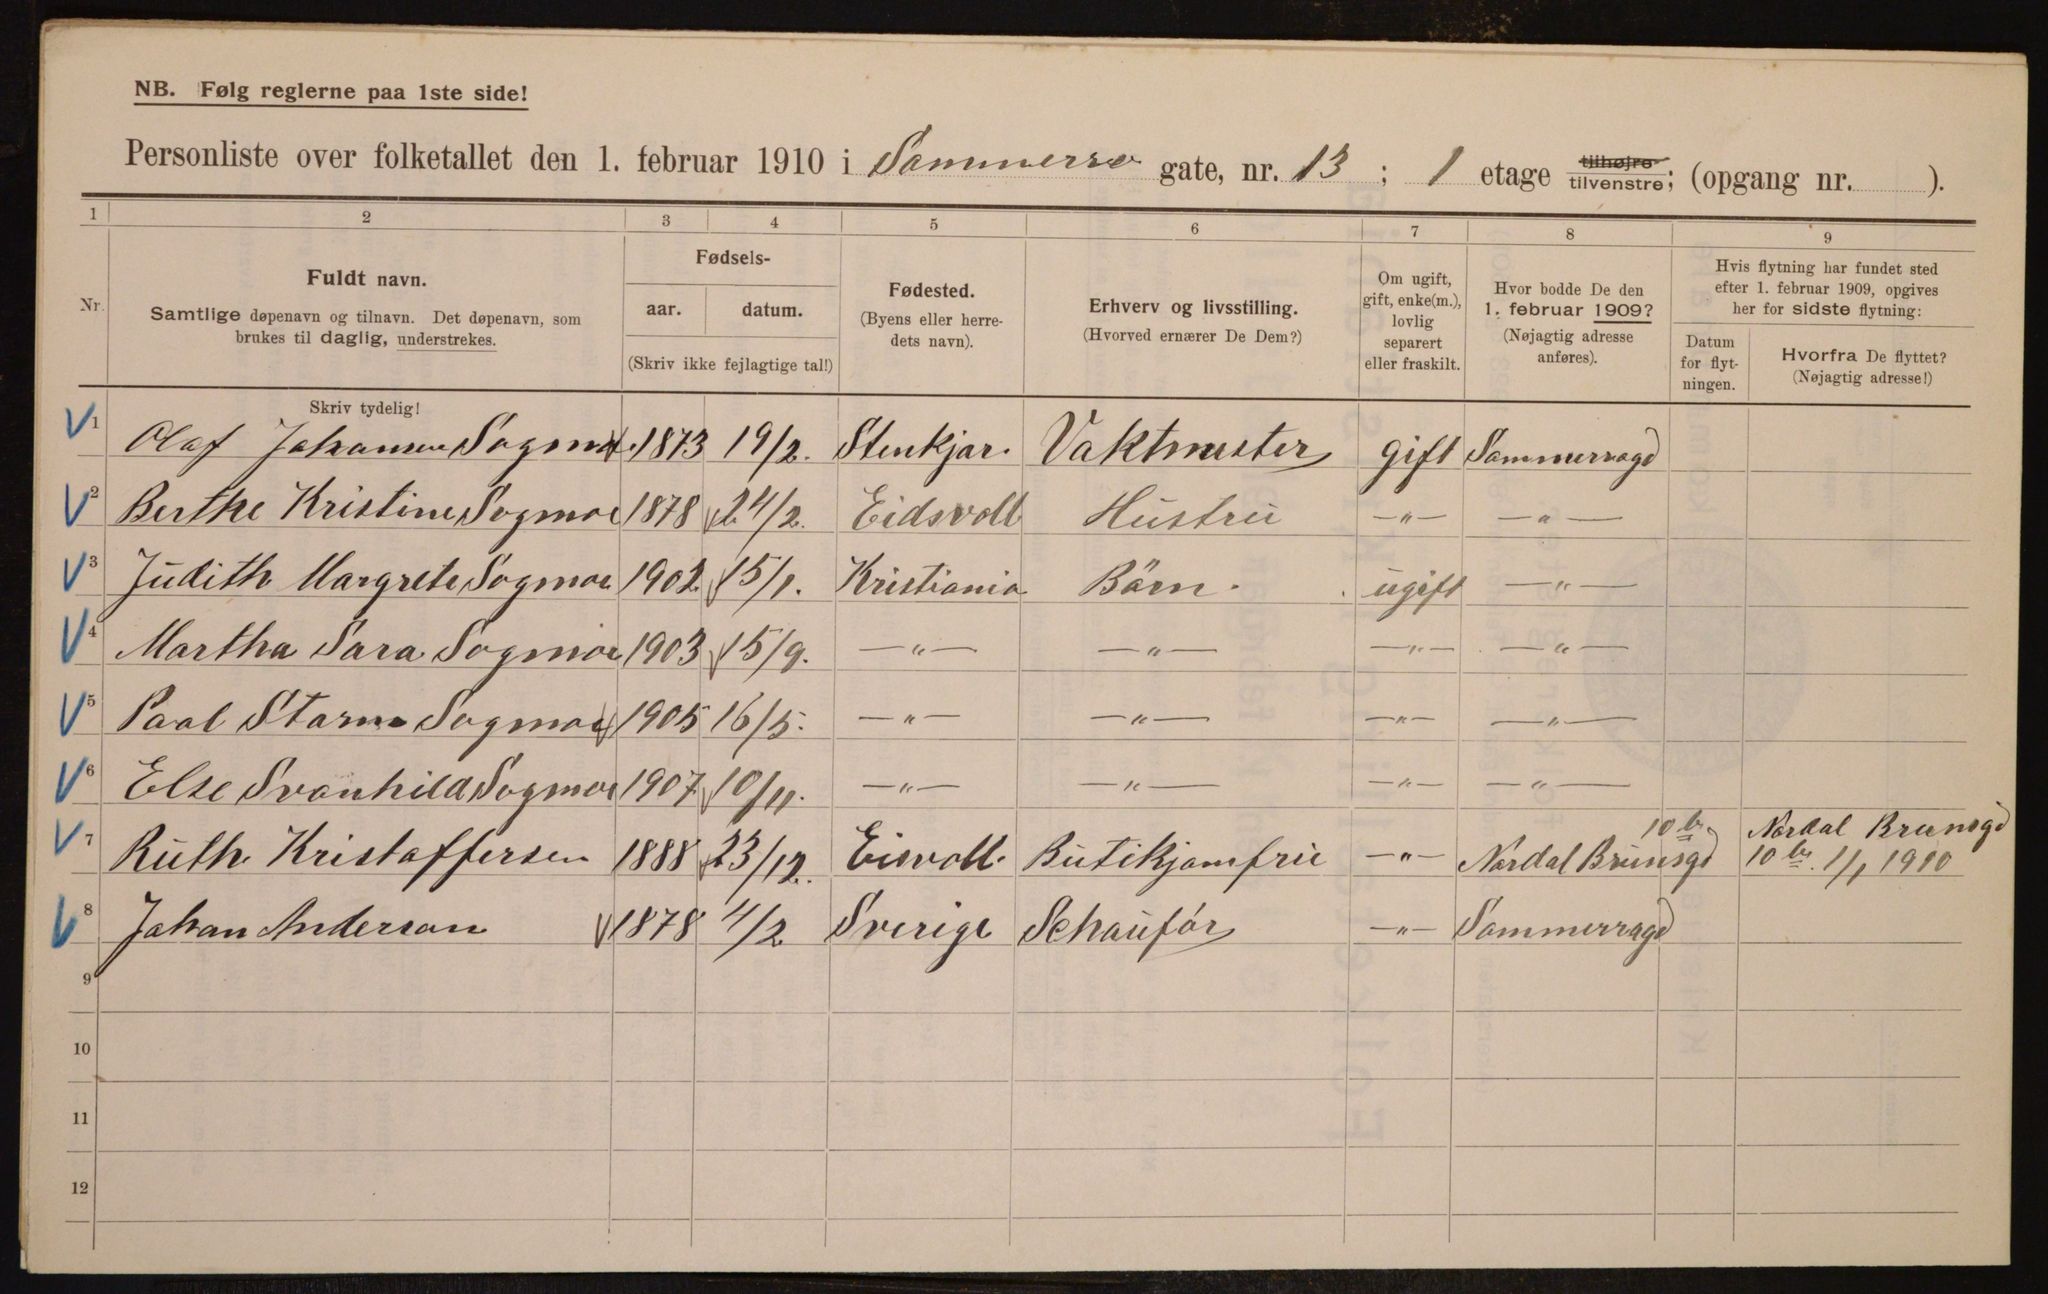 NB. Følg reglerne paa 1ste side!
Personliste over folketallet den 1. februar 1910 i Sommerro gate, nr. 13; 1 etage tilhøjre tilvenstre; (opgang nr. ).
1 2 3 4 5 6 7 8 9
Nr.
Fuldt navn.
Samtlige døpenavn og tilnavn. Det døpenavn, som
brukes til daglig, understrekes.
Fødsels-
aar. datum.
(Skriv ikke fejlagtige tal!)
Fødested.
(Byens eller herre-
dets navn).
Erhverv og livsstilling.
(Hvorved ernærer De Dem?)
Om ugift,
gift, enke(m.),
lovlig
separert
eller fraskilt.
Hvor bodde De den
1. februar 1909?
(Nøjagtig adresse
anføres).
Hvis flytning har fundet sted
efter 1. februar 1909, opgives
her for sidste flytning:
Datum
for flyt-
ningen.
Hvorfra De flyttet?
(Nøjagtig adresse!)
Skriv tydelig!
1 Olaf Johansen Sogmo 1873 19/2. Stenkjar. Vaktmester gift Sommerrogd
2 Berthe Kristine Sogmoe 1878 24/2. Eidsvoll Hustru —"— —"—
3 Judith Margrete Sogmoe 1902 15/1. Kristiania Börn. ugift —"—
4 Martha Sara Sogmoe 1903 15/9. —"— —"— —"— —"—
5 Paal Sogmoe 1905 16/5. —"— —"— —"— —"—
6 Else Svanhild Sogmoe 1907 10/11. —"— —"— —"— —"—
7 Ruth Kristoffersen 1888 23/12. Eisvoll. Butikjomfru —"— Nordal Brunsgd 10 b. Nordal Brunsgd
10 b. 1/1 1910
8 Johan Anderson 1878 4/2 Sverige Schaufór —"— Sommerrogd
9
10
11
12